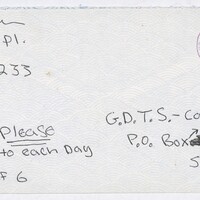 pl.
233
Please
to each Day
F 6
G.D.T.S.-Co
P.O. Box
S